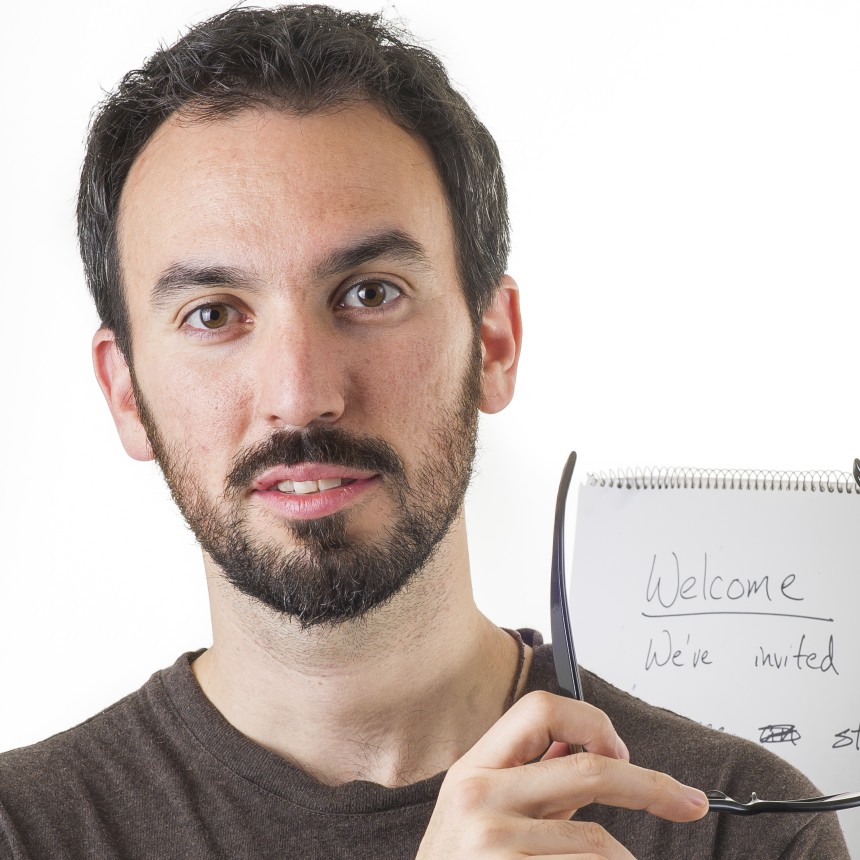 Welcome
We've invited
st